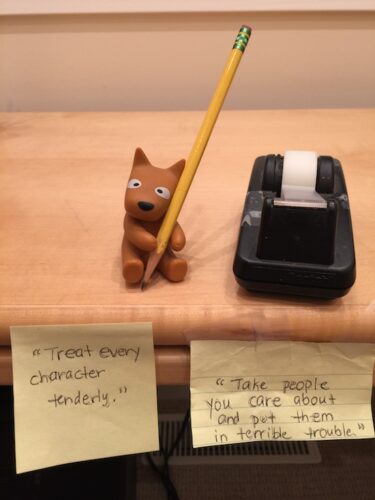 "Treat every
character
tenderly."
"Take people
you care about
and put them
in terrible trouble."